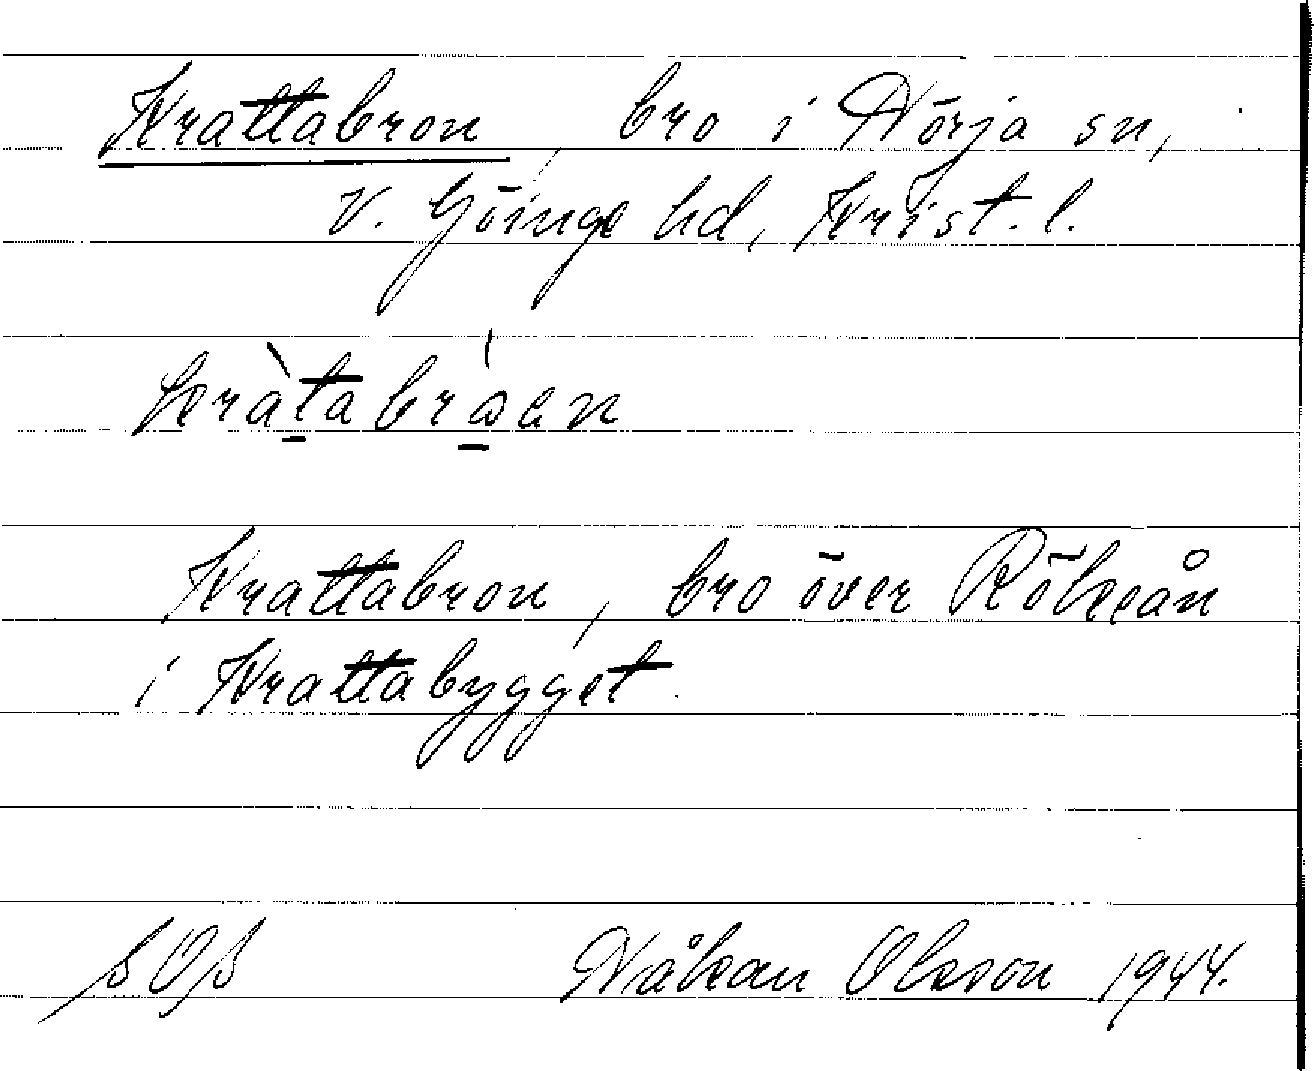 Krattabron, bro i Hörja sn,
V. Göinge hd, Krist. l.
Krattabron, bro över Rökeån
i Krattabygget.
SOS Håkan Olsson 1944.